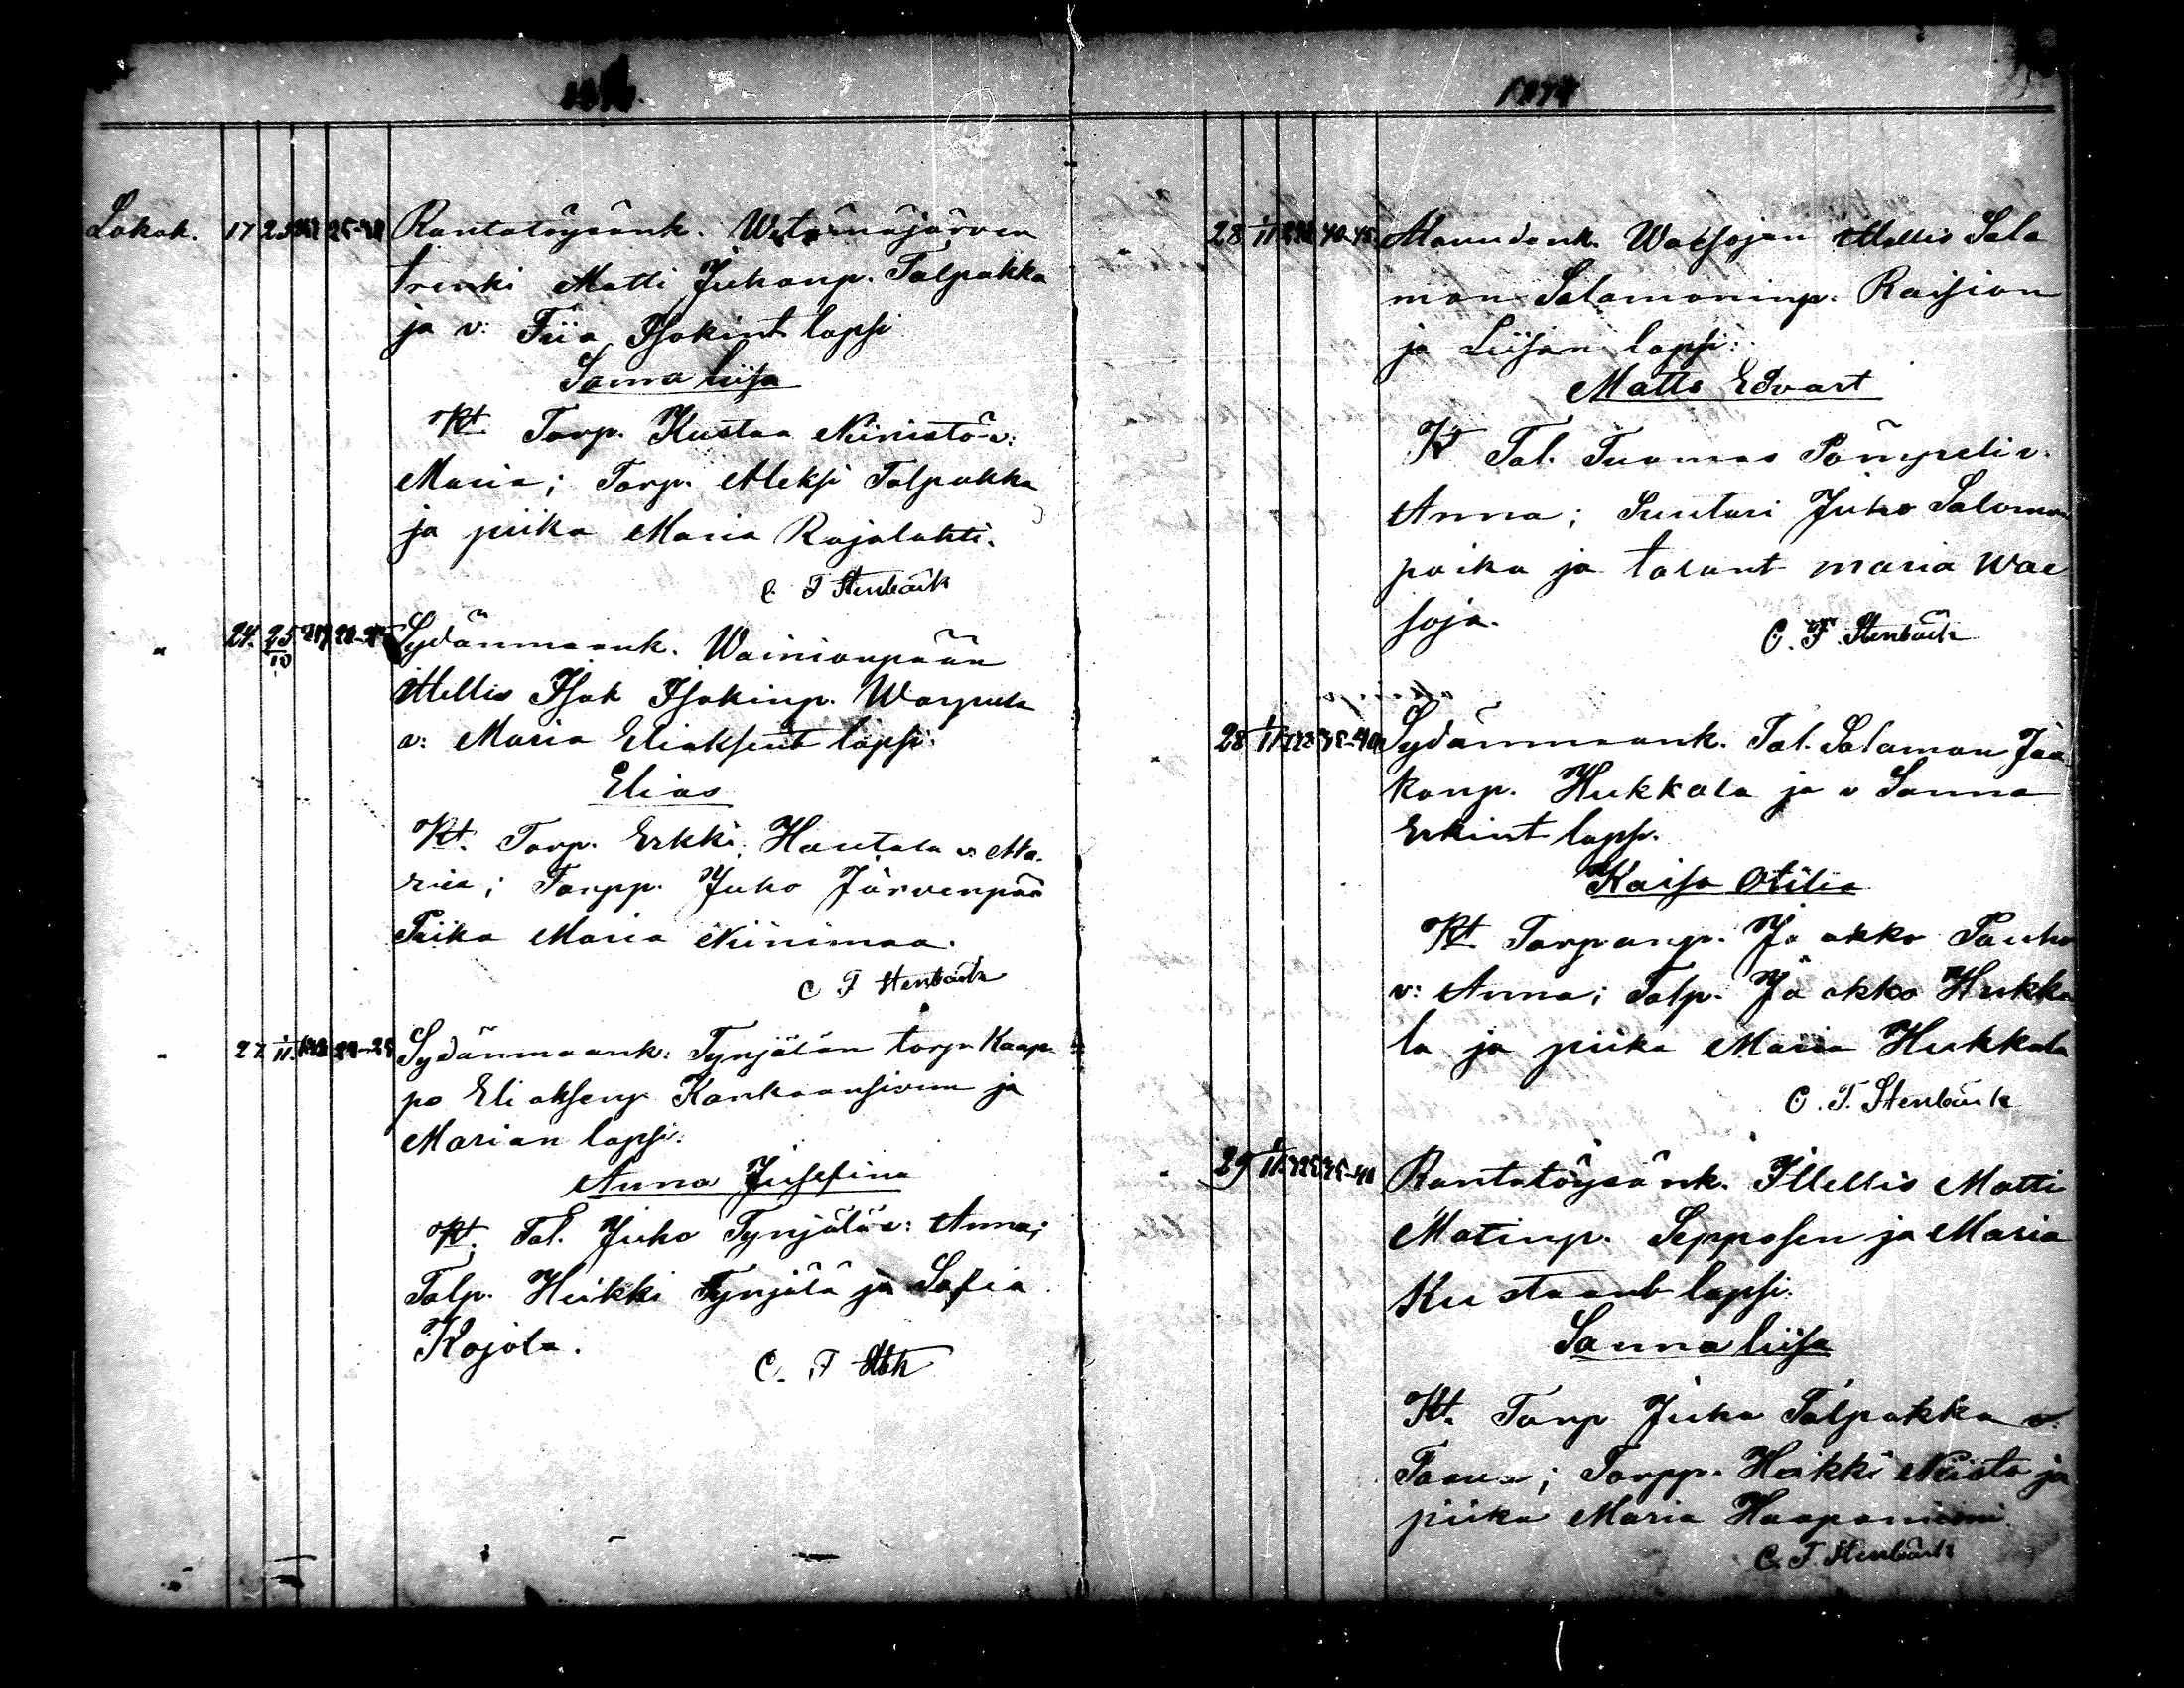 Lokak. 17 25 25-30 Rantatöysänk. Wetämäjärven
trenki Matti Juhanp. Talpakka
ja v: Fiia Isakint lapsi
Sanna Liisa
Kt Torp. Kustaa Niinistö v:
Maria; Torp. Aleksi Talpakka
ja piika Maria Rajalahti.
C. F Stenbäck
" 24. 25/10 Sydänmaank. Wainionpään
Itellis Isak Isakinp. Warpula
v: Maria Eliaksent lapsi.
Elias
Kt. Torp. Erkki Hautala v: Ma-
ria; Torpp. Juho Järvenpää
Piika Maria Niinimaa.
C F Stenbäck
" 27. 1/11. Sydänmaank: Tynjälän torp. Kaap-
po Eliaksenp Kankaansivun ja
Marian lapsi.
Anna Jusefina
Kt. Tal. Juho Tynjälä v: Anna;
Talp. Heikki Tynjälä ja Sofia
Kojola.
C. F Stbk
1877
" 28 1/11 40-45 Waesojan Itellis Sala
mon Salamoninp. Raision
ja Liisan lapsi:
Matts Edvart
Kt Tal. Tuomas Pömpeli v.
Anna; Suutari Juho Saloman
poika ja talont maria Wae
soja.
C. F. Stenbäck
" 28 1/11 35-40 Sydänmaank. Tal. Salaman Jaa
konp. Hukkala ja v Sanna
Erkint laps.
Kaisa Otilia
Kt Torpanp. Jaakko Pauho
v: Anna; Talp. Jaakko Hukka
la ja piika Maria Hukkala
C. F. Stenbäck
" 29 1/11 35-40 Rantatöysänk. Itellis Matti
Matinp. Sepposen ja Maria
Kustaant lapsi.
Sanna Liisa
Kt. Torp Juha Talpakka v.
Torpp. Heikki Niisto ja
piika Maria Haapaniemi.
C. F. Stenbäck